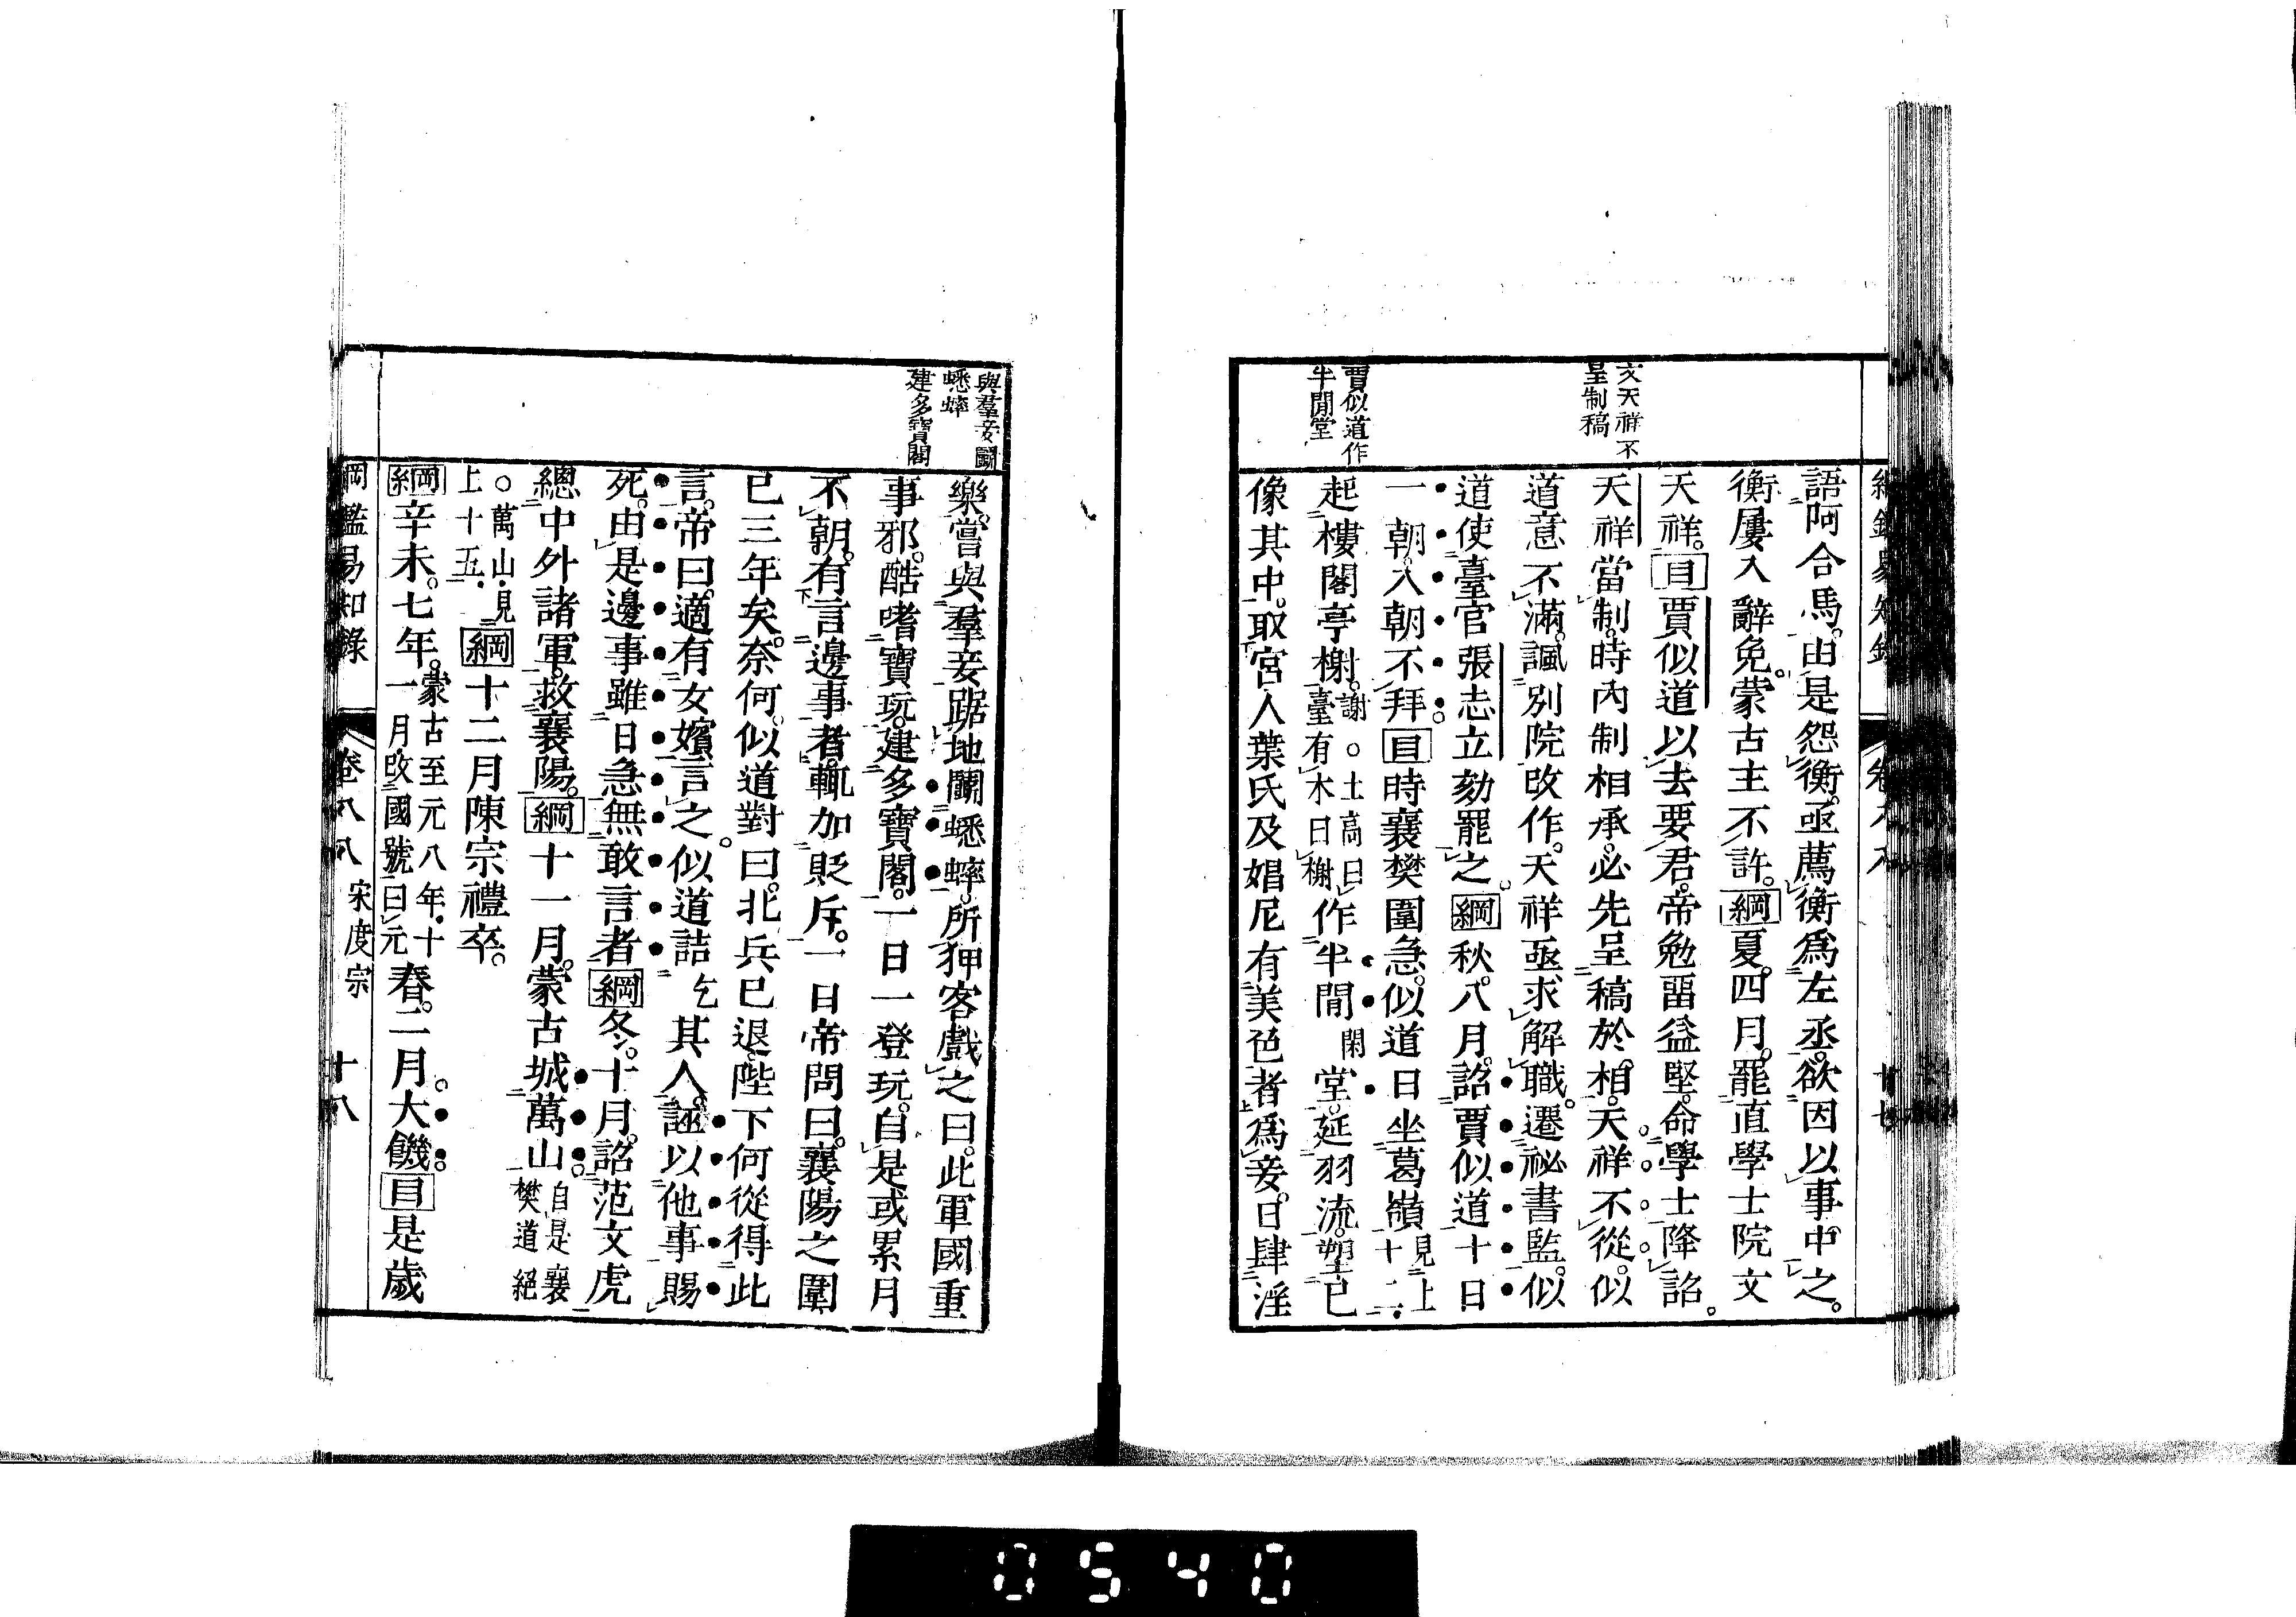 文天祥不
呈制稿
賈似道作
半閒堂
語阿合馬。由是怨衡。亟薦衡爲左丞。欲因以事中之。
衡屢入辭免。蒙古主不許。綱夏。四月。罷直學士院文
天祥。目賈似道以去要君。帝勉畱益堅。命學士降詔。
天祥當制。時內制相承。必先呈稿於相。天祥不從。似
道意不滿。諷別院改作。天祥亟求解職。遷祕書監。似
道使臺官張志立劾罷之。綱秋。八月。詔賈似道十日
一朝。入朝不拜。目時襄樊圍急。似道日坐葛嶺見上十二。
起樓閣亭榭。謝。○土高曰臺有木曰榭作半閒閑堂。延羽流。塑己
像其中。取宮人葉氏及娼尼有美色者爲妾。日肆淫
與羣妾鬭
蟋蟀
建多寶閣
樂。嘗與羣妾踞地鬭蟋蟀。所狎客戲之曰。此軍國重
事邪。酷嗜寶玩。建多寶閣。一日一登玩。自是或累月
不朝。有言邊事者。輒加貶斥。一日帝問曰。襄陽之圍
已三年矣。奈何。似道對曰。北兵已退。陛下何從得此
言。帝曰。適有女嬪言之。似道詰乞其人。誣以他事賜
死。由是邊事雖日急無敢言者綱冬。十月。詔范文虎
總中外諸軍。救襄陽。綱十一月。蒙古城萬山。自是襄樊道絕
○萬山見上十五綱十二月陳宗禮卒。
綱辛未。七年。蒙古至元八年十一月改國號曰元春。二月。大饑。目是歲
綱鑑易知錄 卷八八 宋度宗 十八
0540